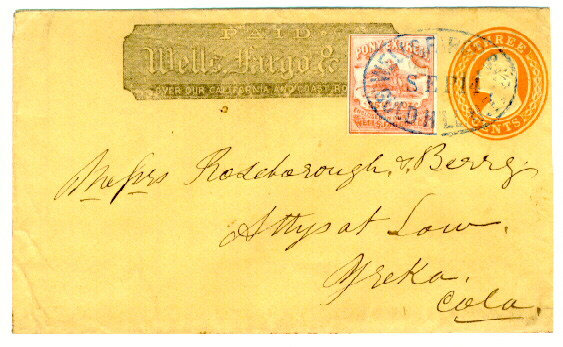 PAID
Wells, Fargo &
OVER OUR CALIFORNIA AND COAST RO
PONY EXPRESS
WELLS, FARGO
WELLS, FARGO
SEP 14
GOLD HILL
THREE
CENTS
Messrs Roseborough & Berry
Attys at Law.
Yreka.
Cala.